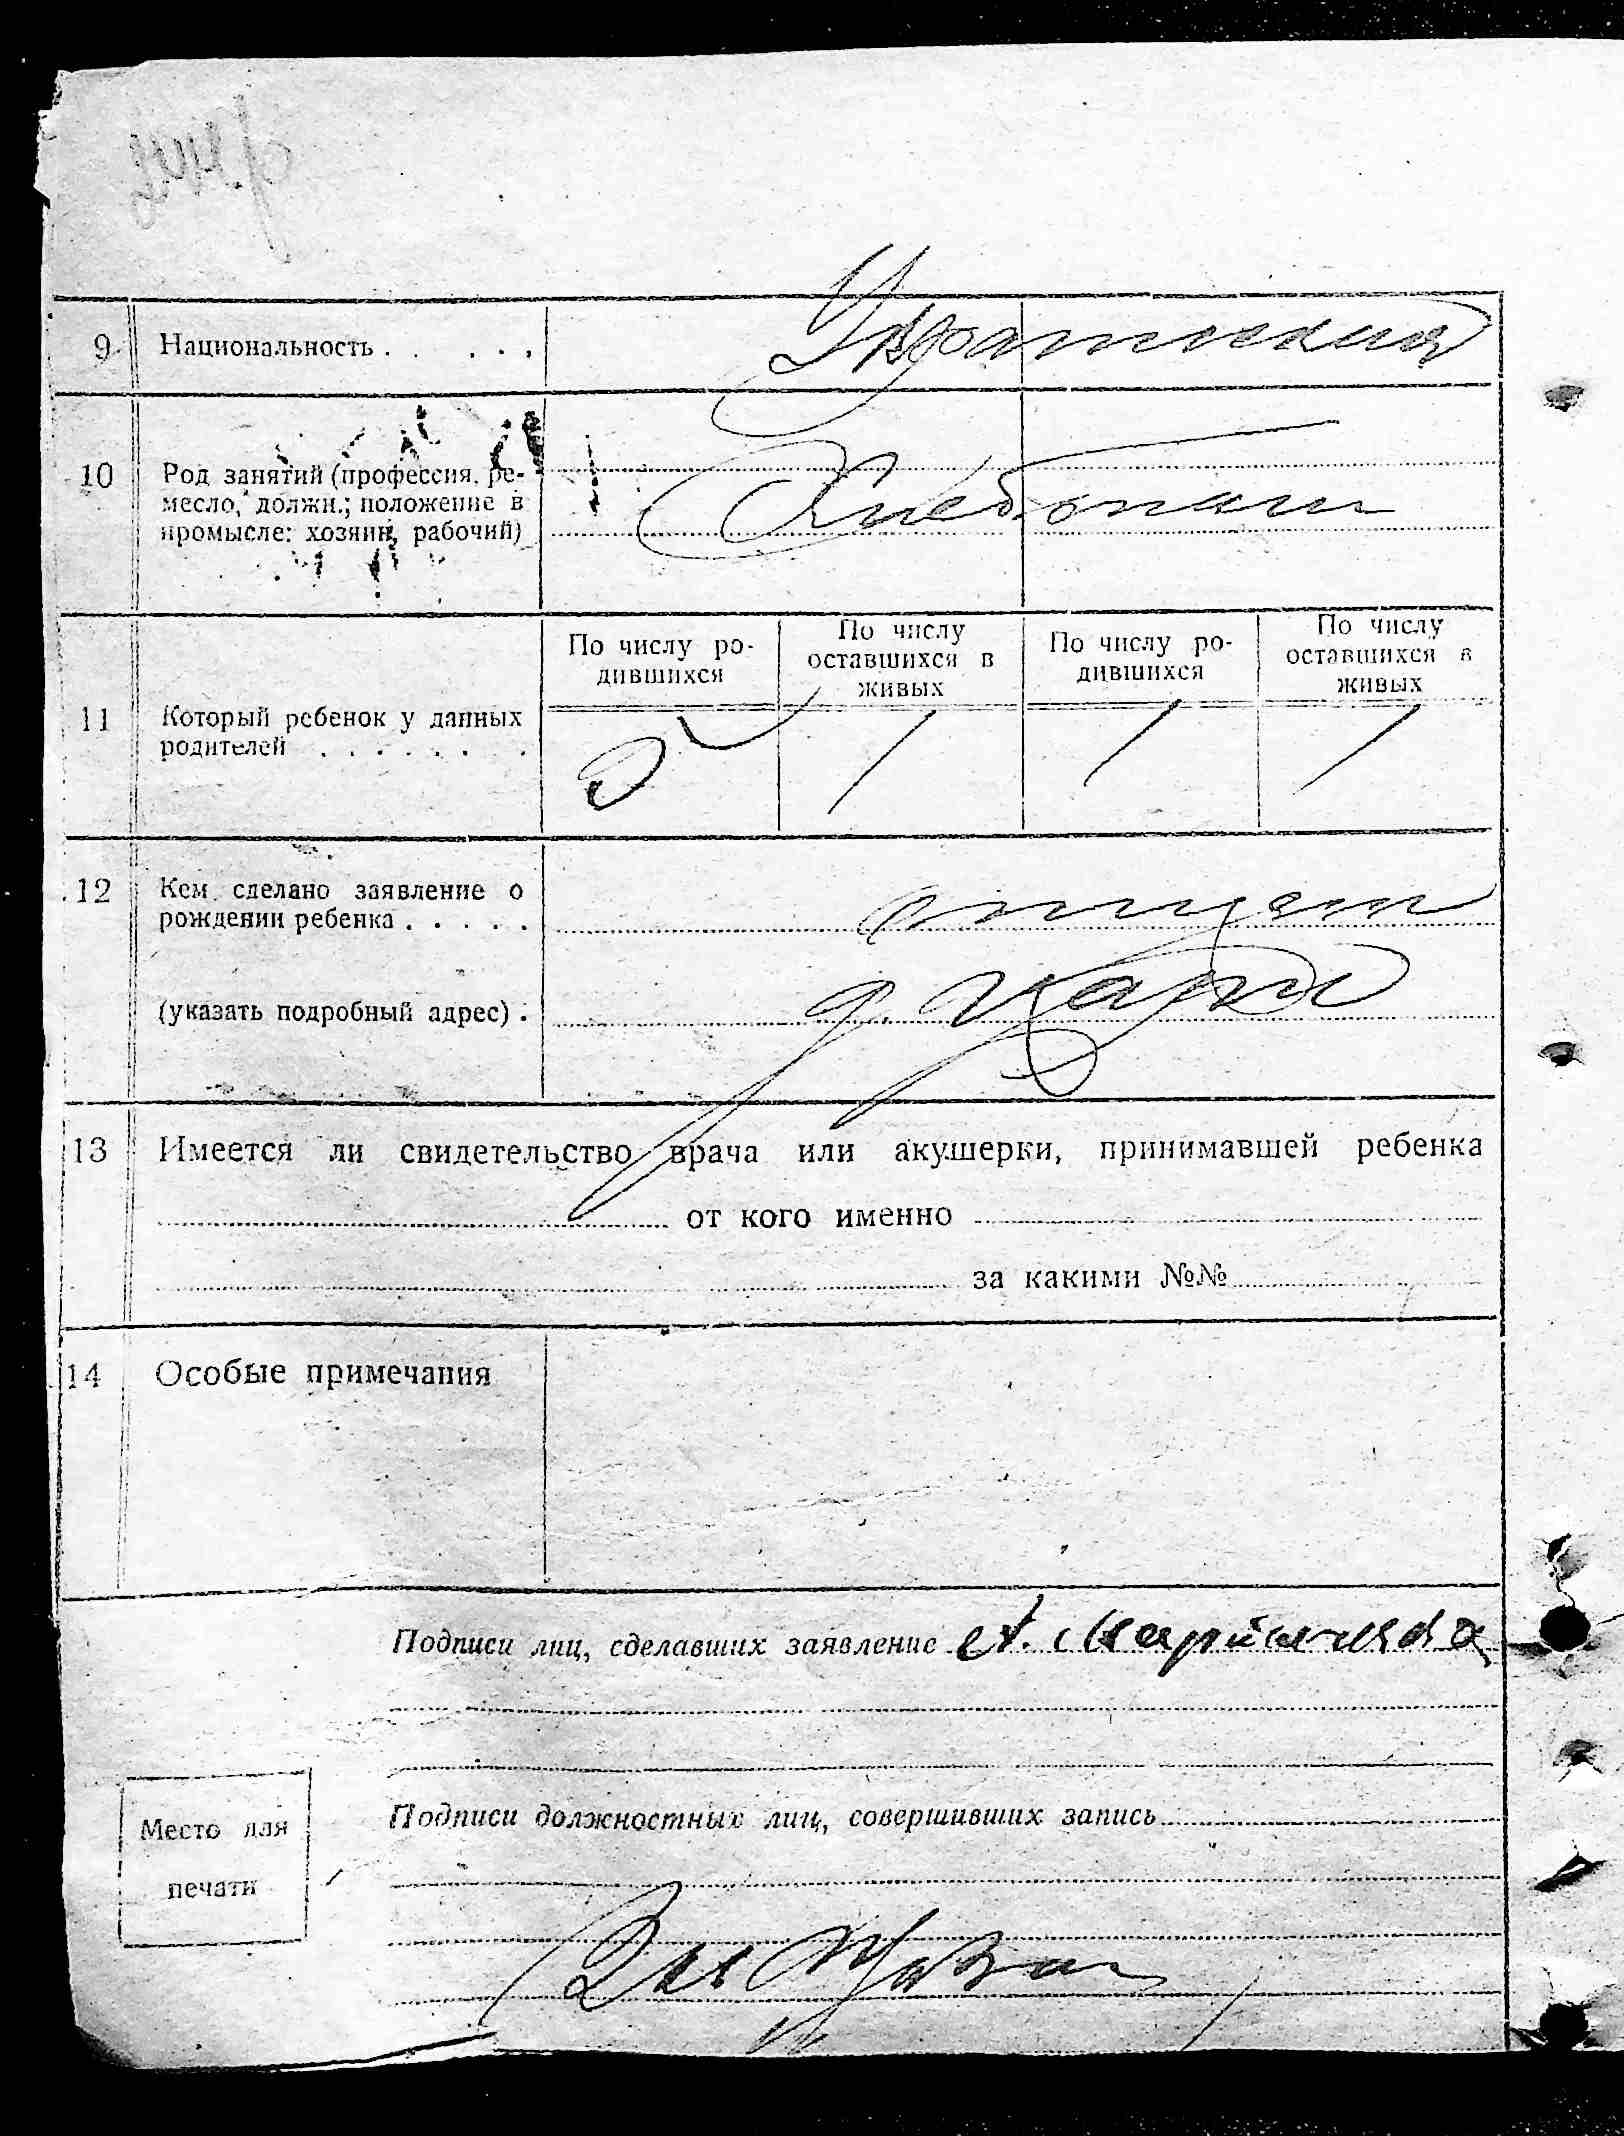 9 Национальность . . . . . . Украинская
10 Род занятий (профессия, ре-
месло, должн.; положение в
промысле: хозяин, рабочий)
Хлебопаш
По числу ро-
дившихся
По числу
оставшихся в
живых
По числу ро-
дившихся
По числу
оставшихся в
живых
11 Который ребенок у данных
родителей . . . . . . . .
12 Кем сделано заявление о
рождении ребенка . . . . .
отцем
(указать подробный адрес) .
13 Имеется ли свидетельство врача или акушерки, принимавшей ребенка
от кого именно
за какими №№
14 Особые примечания
Подписи лиц, сделавших заявление
Подписи должностных лиц, совершивших запись
Место для
печати